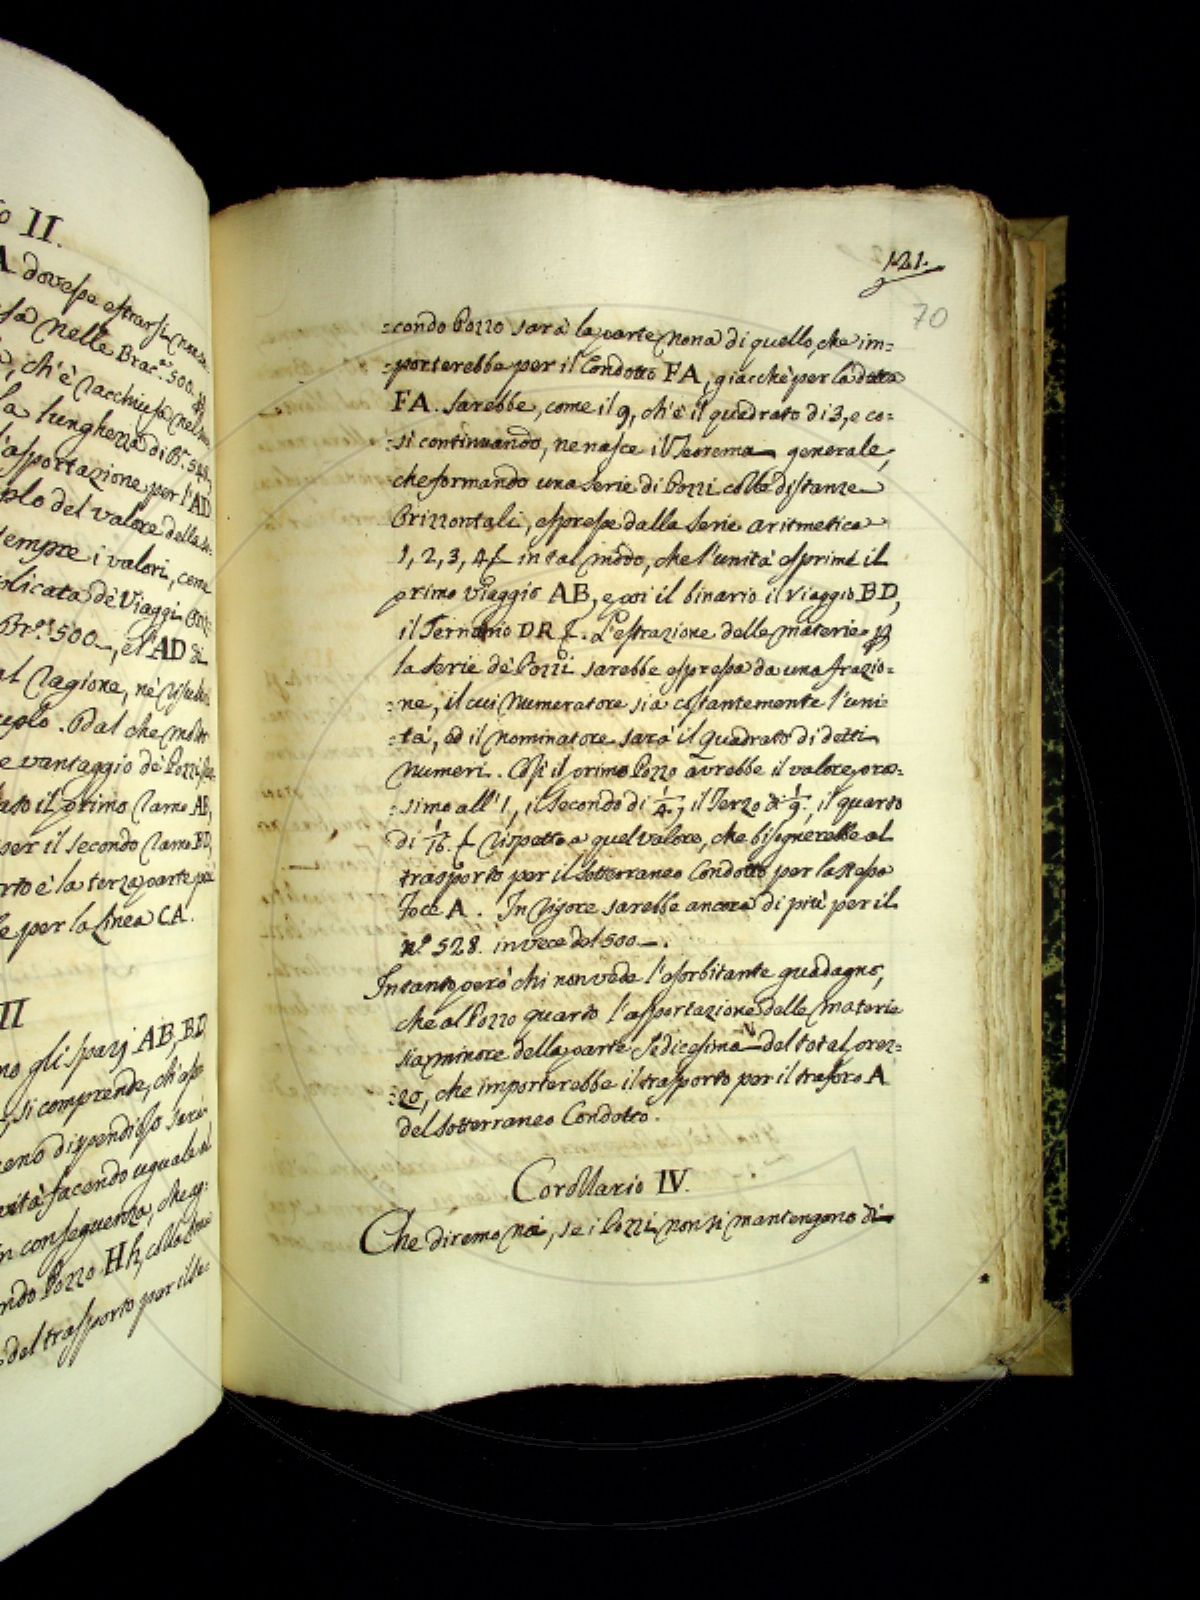 o II.
A dovesse estrarsi
nelle Brac.ª 500.
, ch'è racchiusa nel
la lunghezza di Br. 54
l'asportazione per l'AD
plo del valore della
sempre i valori, come
plicata de' Viaggi Oriz
Br.ª 500, e l'AD di
al ragione, nè
Dal che molto
e vantaggio de' Pozzi
il primo ramo AB,
per il secondo ramo BD
è la terza parte
e per la linea CA.
II
no gli spazj AB, BD
, si comprende, ch'
eno dispendioso
facendo uguale
in conseguenza, che
ndo Pozzo Hh, colla
del trasporto per il se-
121.
70
=condo Pozzo sarà la parte nona di quello, che im=
=porterebbe per il Condotto FA, giacchè per la detta
FA. sarebbe, come il 9, ch'è il quadrato di 3, e co=
=sì continuando, ne nasce il Teorema generale,
che formando una serie di Pozzi colle distanze
Orizzontali, espresse dalla serie aritmetica
1, 2, 3, 4 in tal modo, che l'unità esprime il
primo viaggio AB, e poi il binario il viaggio BD,
il Ternario DR. L'estrazione delle materie p
la serie de' Pozzi sarebbe espressa da una frazio=
=ne, il cui numeratore sia costantemente l'uni=
=tà, ed il nominatore sarà il quadrato di detti
numeri. Così il primo Pozzo avrebbe il valore pros=
=simo all'1, il secondo di 1/4, il Terzo di 1/9, il quarto
di 1/16. rispetto a quel valore, che bisognerebbe al
trasporto per il sotterraneo Condotto per la stessa
Foce A. In rigore sarebbe ancora di più per il
n.º 528. in vece del 500.
Intanto però chi non vede l'esorbitante guadagno,
che al Pozzo quarto l'asportazione delle materie
sia minore della parte Sedicesima del total prez=
=zo, che importerebbe il trasporto per il traforo A
del sotterraneo Condotto.
Corollario IV.
Che diremo noi, se i Pozzi non si mantengono di